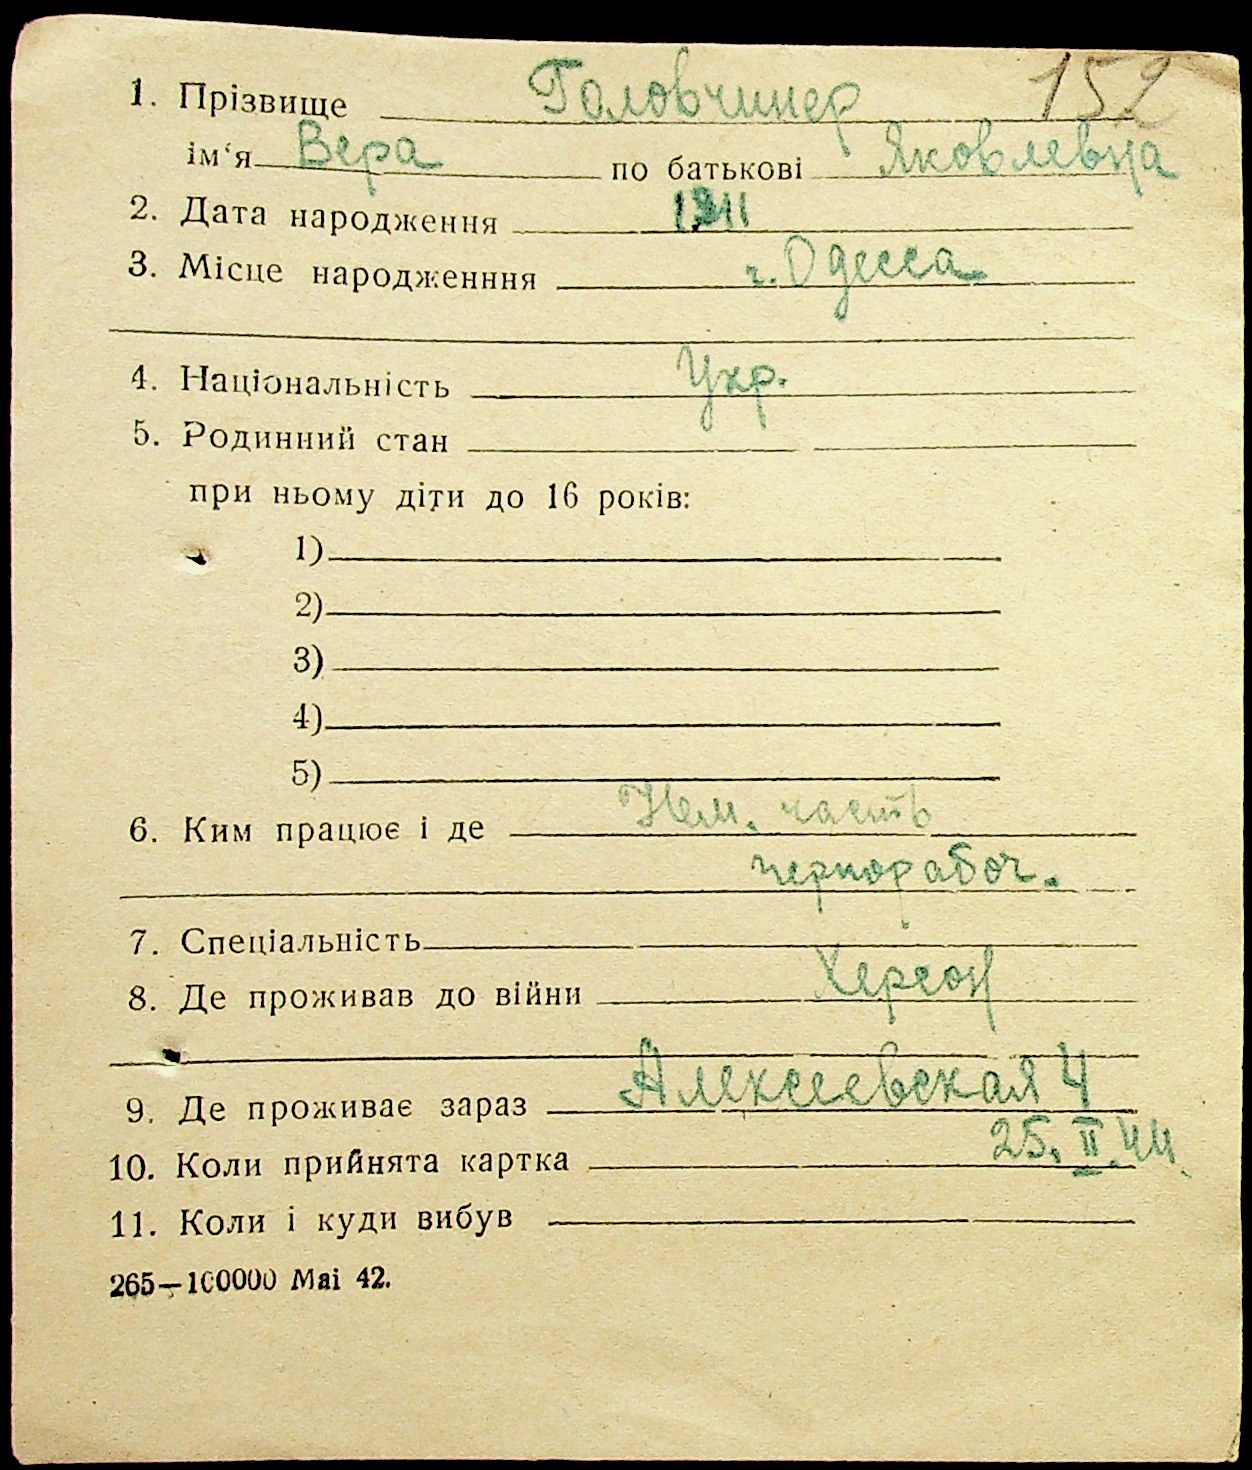 152
1. Прізвище Головчинер
ім‘я Вера по батькові Яковлевна
2. Дата народження 1911
3. Місце народженння г. Одесса
4. Національність Укр.
5. Родинний стан
при ньому діти до 16 років:
1)
2)
3)
4)
5)
6. Ким працює і де Нем. часть
чернорабоч.
7. Спеціальність
8. Де проживав до війни Херсон
9. Де проживає зараз Алексеевская 4
10. Коли прийнята картка 25. II. 44
11. Коли і куди вибув
265—100000 Mai 42.